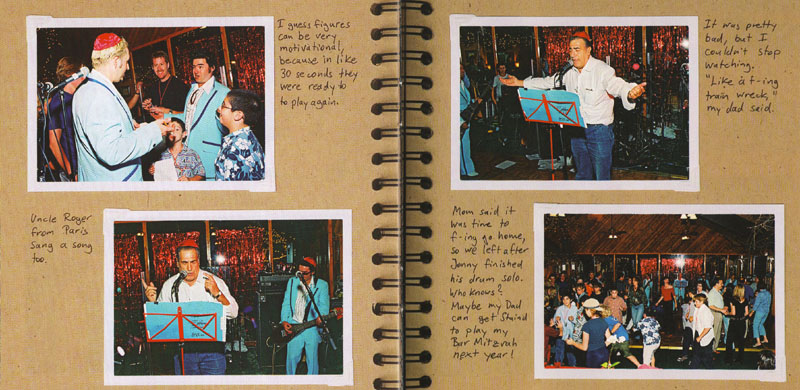 I guess figures
can be very
motivational,
because in like
30 seconds they
were ready to
to play again.
Uncle Roger
from Paris
sang a song
too.
It was pretty
bad, but I
couldn't stop
watching.
"Like a f-ing
train wreck,"
my dad said.
Mom said it
was time to
f-ing go home,
so we left after
Jonny finished
his drum solo.
Who knows?
Maybe my Dad
can get Staind
to play my
Bar Mitzvah
next year!